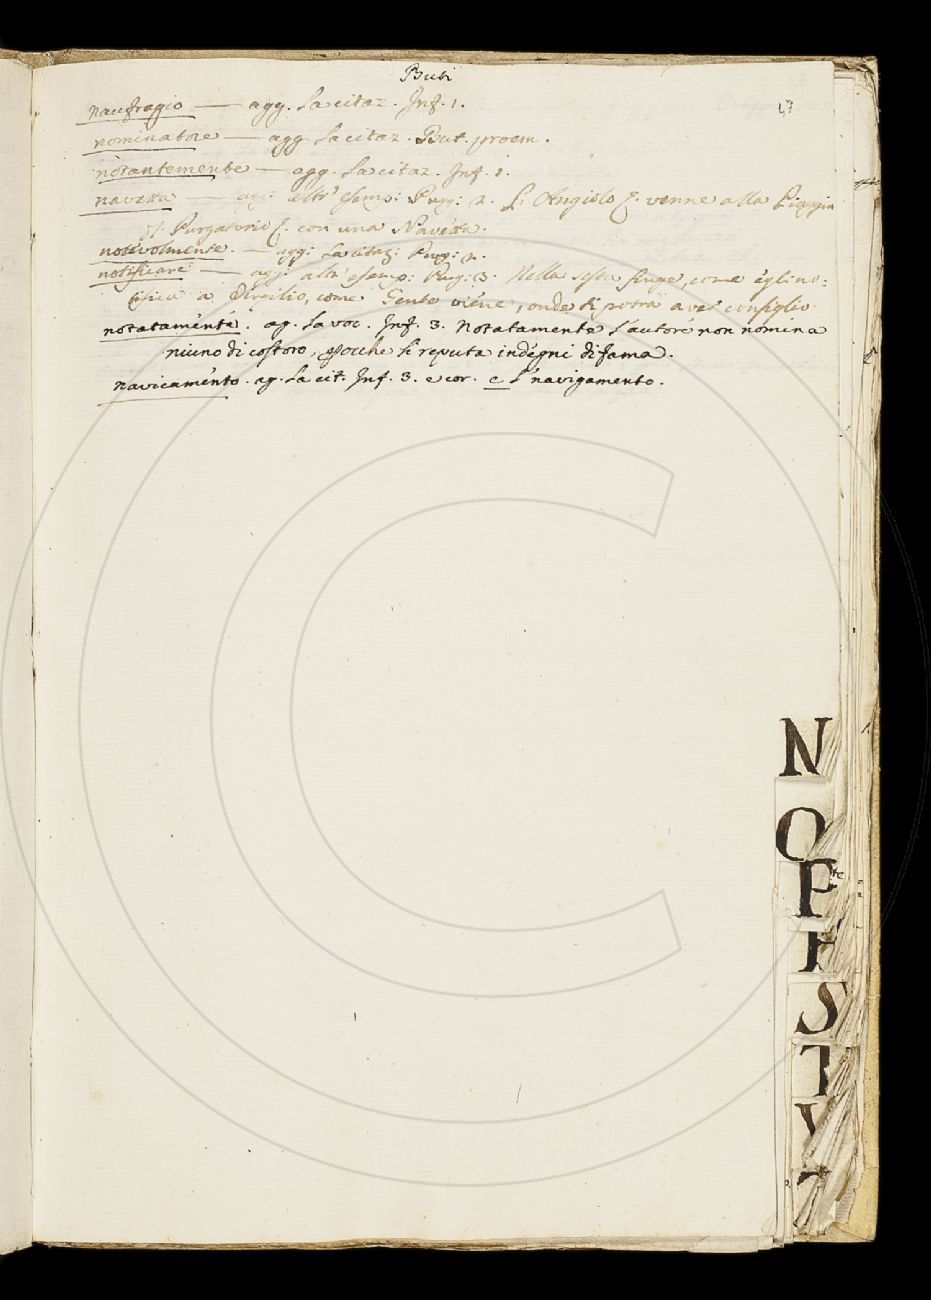 Buti
47
naufragio — agg. la citaz. Inf. 1.
nominatore — agg. la citaz. But. proem.
notantemente — agg. la citaz. Inf. 1.
navetta — agg: altr' esemp: Purg: 2. L' Angiolo &. venne alla Piaggia
Purgatorio &. con una Navetta.
notevolmente. — agg: la citaz: Purg: 2.
notificare — agg: altr' esemp: Purg: 3. Nella sesta finge, come egli no:
tifica a Virgilio, come Gente viene, onde si potrà aver consiglio
notatamente. ag. la voc. Inf. 3. Notatamente l'autore non nomina
niuno di costoro, perocche li reputa indegni di fama.
navicamento. ag. la cit. Inf. 3. e cor. e l' navigamento.
N
O
P
R
S
T
V
Z